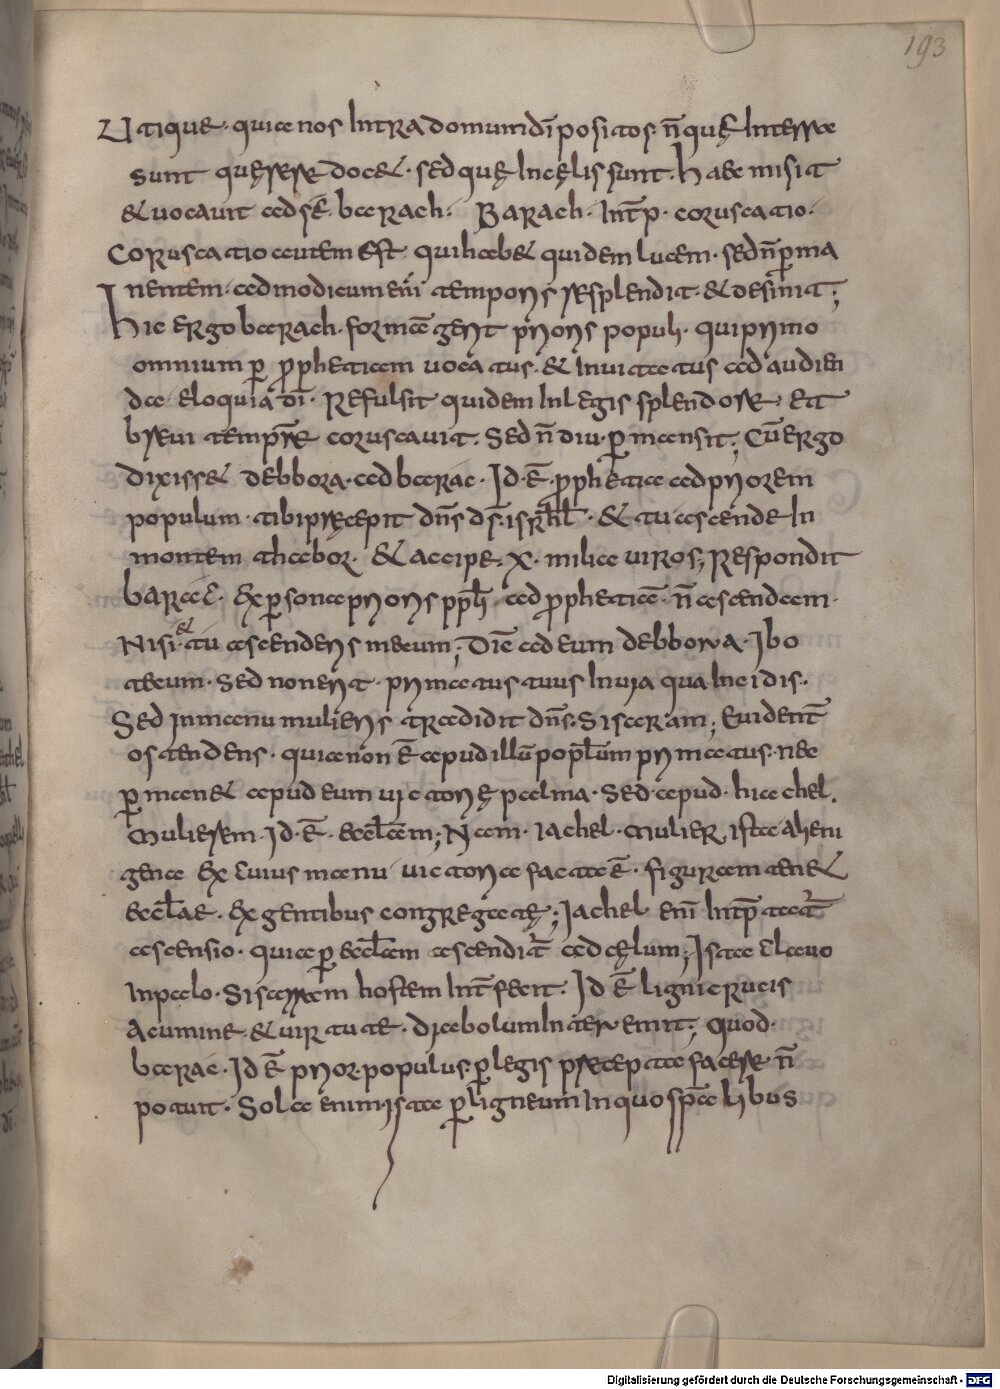 193
Utique · quia nos intra domum dī positos · n̄ quę in terra
sunt quęrere docet · sed quę in cęlis sunt · haec misit
& uocauit ad sē · barach · Barach · Int̄p · coruscatio ·
Coruscatio autem est · qui habet quidem lucem · sed n̄ perma
nentem · ad modicum eni temporis resplendit · & desinit ;
hic ergo barach · formā gerit prioris populi · qui primo
omnium ꝑ propheticam uocatus · & inuitatus ad audien
da eloquia dī · Refulsit quidem in legis splendore · et
breui tempr̄e coruscauit · Sed n̄ diu · ꝑmansit ; Cū ergo
dixisset debbora · ad barac · Id · ē · prophetia ad priorem
populum · tibi pręcepit dn̄s ds̄ · isrl · & tu ascende in
montem thabor · & accipe · x · milia uiros ; Respondit
barac · ex ꝑsona prioris pph̄ · ad prophetiā · n̄ ascendam ·
Nisi · & tu ascenderis mecum ; Dic̄ ad eum debborra · Ibo
tecum · Sed non erit · primatus tuus in uia qua incidis ·
Sed in manu mulieris tradidit dn̄s · Sisaram ; Euident̄
ostendens · quia non ē apud illū popl̄um primatus · nec
ꝑmanet apud eum uictorię palma · Sed · apud · hiachel ·
Mulierem · Id · ē · eccl̄am ; Nam · Iachel · mulier ista alieni
gena ex cuius manu uictoria facta ē · figuram tenet
eccl̄ae · ex gentibus congregatę ; Iachel eni int̄ptatur
ascensio · quia ꝑ eccl̄am ascenditur ad cęlum ; Ista clauo
in palo · Sisarram hostem int̄fecit · Id ē ligni crucis
Acumine · & uirtute · diabolum interemit ; Quod ·
barac · Id ē prior · populus · ꝑ legis præcepta facere n̄
potuit · Sola enim ista ꝑ ligneum in quo sp̄talibus
Digitalisierung gefördert durch die Deutsche Forschungsgemeinschaft - DFG